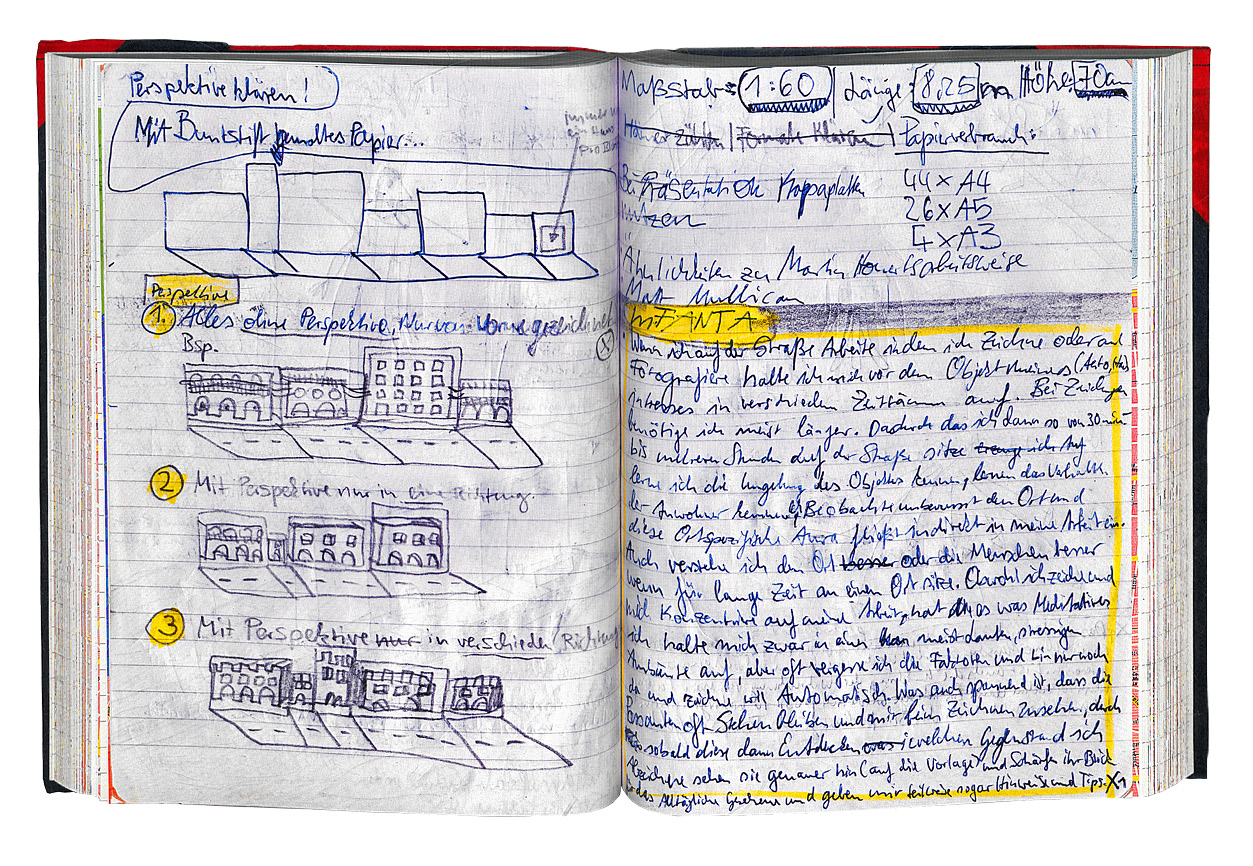 Perspektive klären!
Mit Buntstift gemaltes Papier...
immer
ein Haus
pro Blatt
Perspektive
1. Alles ohne Perspektive, Nur von Vorne gezeichnet
Bsp.
X
2 Mit Perspektive nur in eine Richtung.
3 Mit Perspektive nur in verschieden Richtung
Maßstab: 1:60 | Länge: 8,25 m Höhe: 70cm
Häuser zählen | Formate klären | Papierverbrauch:
Bei Präsentation Kappaplatten
nutzen
44 x A4
26 x A5
4 x A3
Ähnlichkeiten zu Martin Honerts arbeitsweise
Matt Mullican
Wenn ich auf der Straße Arbeite indem ich Zeichne oder auch
Fotografiere halte ich mich vor dem Objekt meines (Auto,
Intresses in verschieden Zeiträumen auf. Bei Zeichnungen
benötige ich meist länger. Dadurch das ich dann so von 30 min
bis mehreren Stunden auf der Straße sitze
lerne ich die Umgebung des Objektes kennen, lernen das Verhalten
der Anwohner kennen, Beobachte unbewusst den Ort und
diese Ortspezifische Aura fließt indirekt in meine Arbeit ein.
Auch verstehe ich den Ort besser oder die Menschen besser
wenn für lange Zeit an einen Ort sitze. Obwohl ich zeichne und
mich Konzentriere auf meine Arbeit, hat dies was Meditatives
ich halte mich zwar in einem meist lauten, stressigen
Ambiente auf, aber oft vergesse ich die Faktoren und bin nur noch
da und zeichne Automatisch. Was auch spannend ist, dass die
Passanten oft Stehen bleiben und mir beim Zeichnen zusehen, doch
sobald diese dann Entdecken was welchen Gegenstand ich
abzeichne sehen sie genauer hin (auf die Vorlage) und Schärfen ihr Blick
für das Alltägliche Geschehen und geben mir teilweise sogar Hinweise und Tips. X1